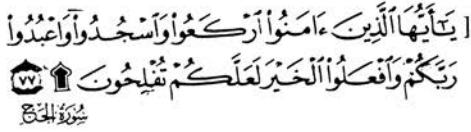 [ يَـٰٓأَيُّهَا ٱلَّذِينَ ءَامَنُوا۟ ٱرْكَعُوا۟ وَٱسْجُدُوا۟ وَٱعْبُدُوا۟
رَبَّكُمْ وَٱفْعَلُوا۟ ٱلْخَيْرَ لَعَلَّكُمْ تُفْلِحُونَ ۩ ٧٧
سُورَةُ الحَجّ